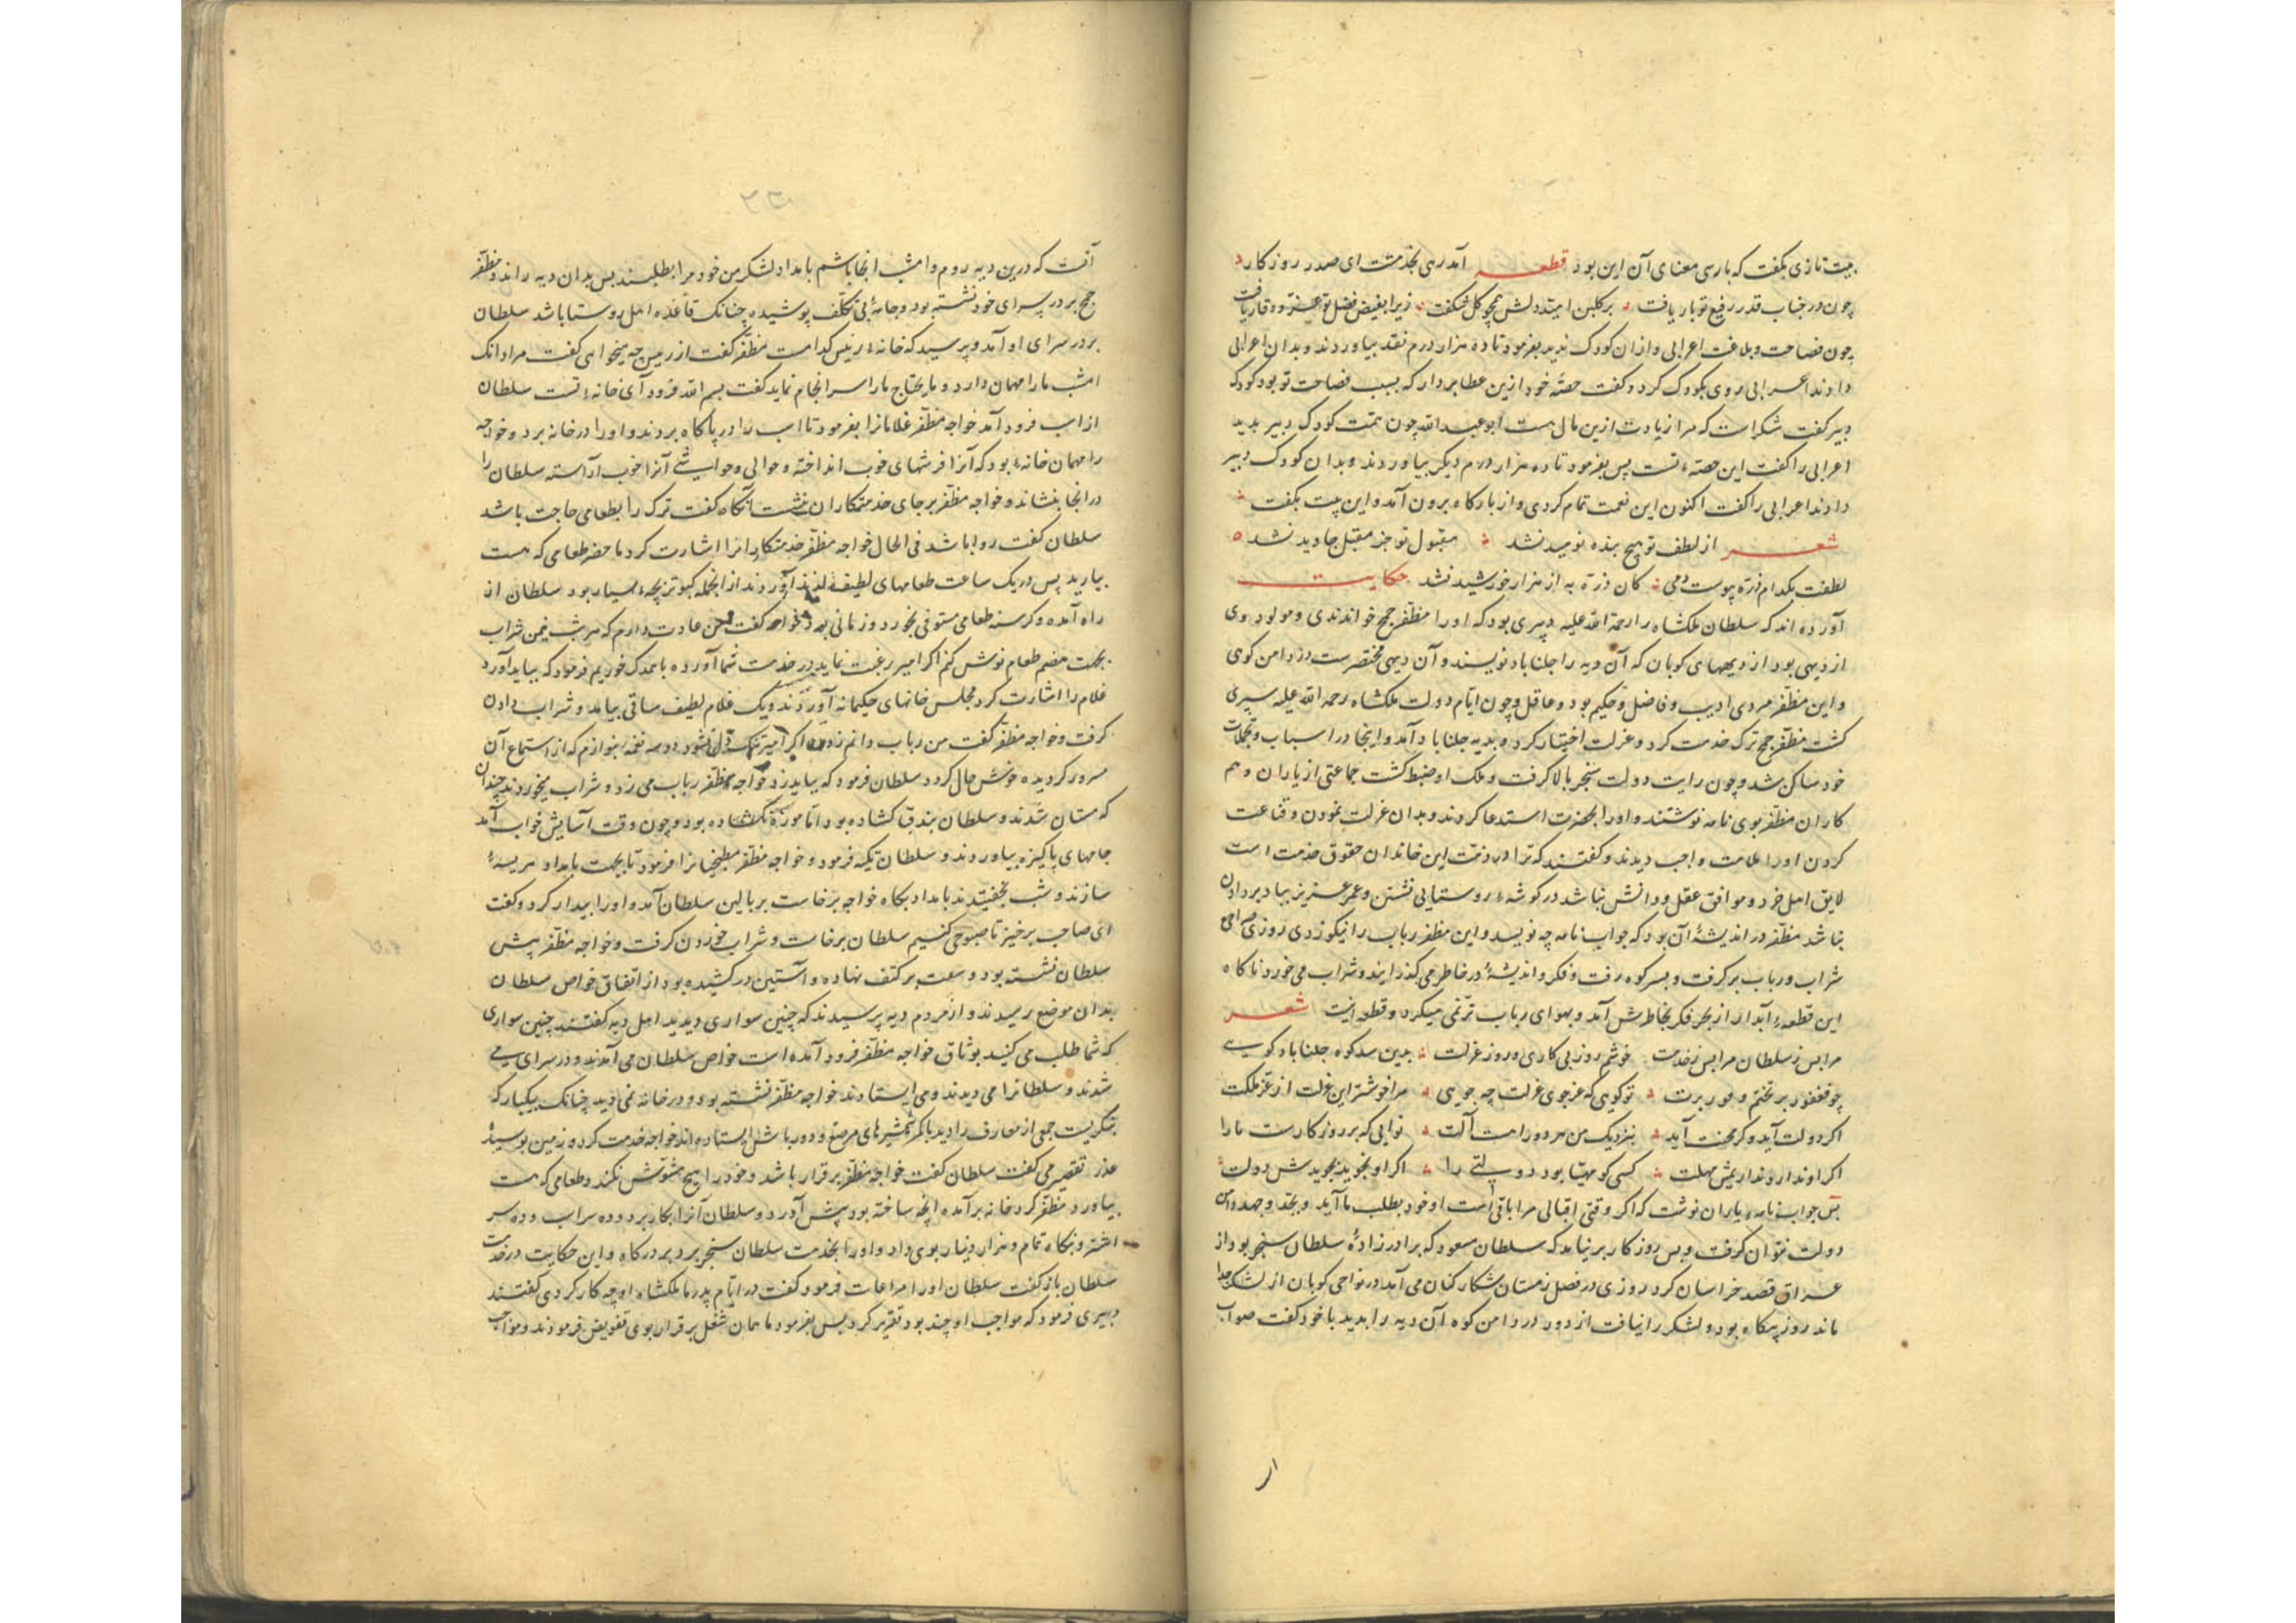 بیت تازی بگفت که پارسی معنای آن این بود قطعه آمد رهی بخدمتت ای صدر روزکار
چون در جناب قدر رفیع تو بار یافت برکلبن امید دلش همچو کل شکفت زیرا بفیض فضل تو عز و وقار یافت
چون فصاحت و بلاغت اعرابی و ازان کودک بدید بفرمود تا ده هزار درم نقد بیاوردند و بدان اعرابی
دادند اعرابی روی بکودک کرد و کفت حصّه خود ازین عطا بردار که بسبب فصاحت تو بود کودک
دبیر کفت شکر است که مرا زیادت ازین مال هست ابو عبد الله چون همّت کودک دبیر بدید
اعرابی را کفت این حصّهٔ تست پس بفرمود تا ده هزار درم دیکر بیاوردند و بدان کودک دبیر
دادند اعرابی را کفت اکنون این نعمت تمام کردی و از بارکاه برون آمد و این بیت بکفت
شعر از لطف تو هیچ بنده نومید نشد مقبول تو جز مقبل جاوید نشد
لطفت بکدام ذرّه پیوست دمی کان ذرّه به از هزار خورشید نشد حکایت
آورده اند که سلطان ملکشاه را رحمة الله علیه دبیری بود که او را مظفّر جمج خواندندی و مولود وی
از دیهی بود از دیههای کوبان که آن دیه را جلناباد نویسند و آن دیهی مختصرست در دامن کوهی
و این مظفّر مردی ادیب و فاضل و حکیم بود و عاقل و چون ایّام دولت ملکشاه رحمه الله علیه سپری
کشت مظفّر جمج ترک خدمت کرد و عزلت اختیار کرد و بدیه جلناباد آمد و اینجا در اسباب و تجملات
خود ساکن شد و چون رایت دولت سنجر بالا کرفت و ملک او ضبط کشت جماعتی از یاران و هم
کاران مظفّر بوی نامه نوشتند و او را بحضرت استدعا کردند و بدان عزلت نمودن و قناعت
کردن او را ملامت واجب دیدند و کفتند که ترا در ذمّت این خاندان حقوق خدمت است
لایق اهل خرد و موافق عقل و دانش نباشد در کوشهٔ روستایی نشستن و عمر عزیز بباد بر دادن
نباشد مظفّر در اندیشهٔ آن بود که جواب نامه چه نویسد و این مظفّر رباب را نیکو زدی روزی
شراب و رباب برکرفت و بسر کوه رفت و فکر و اندیشهٔ در خاطر می کذرانید و شراب می خورد ناکاه
این قطعهٔ آبدار از بحر فکر بخاطرش آمد و بهوای رباب ترنّمی میکرد و قطعه اینست شعر
مرا بس ز سلطان مرا بس ز خدمت خوشم روز بی کاری و روز عزلت بدین سد کوه جلناباد کویی
چو فغفور بر تختم و فور برت توکویی که عز جوی عزلت چه جویی مرا خوشتر این عزلت از عزّ ملکت
اکر دولت آید و کر محنت آید بنزدیک من هر دو را هست آلت نوایی که بر روزکارست ما را
اکر او ندارد ندار یمش مهلت کسی کو مهیّا بود دولتی را اکر او نجوید بجویدش دولت
پس جواب نامه یاران نوشت که اکر وقتی اقبالی مرا باقی است او خود بطلب ما آید و بجد و جهد دامن
دولت نتوان کرفت و بس روزکار بر نیامد که سلطان مسعود که برادر زادهٔ سلطان سنجر بود از
عراق قصد خراسان کرد روزی در فصل زمستان شکار کنان می آمد در نواحی کوبان از لشکر جدا
ماند روز بیکاه بود و لشکر را نیافت از دور در دامن کوه آن دیه را بدید با خود کفت صواب
آنست که درین دیه روم و امشب انجا باشم بامداد لشکر من خود مرا بطلبند پس بدان دیه راند و مظفّر
جمج بر در سرای خود نشسته بود و جامهٔ بی تکلّف پوشیده چنانک قاعدهٔ اهل روستا باشد سلطان
بر در سرای او آمد و پرسید که خانهٔ رئیس کدامست مظفّر کفت از رئیس چه میخواهی کفت مرا دانک
امشب ما را مهمان دارد و ما یحتاج ما را سرانجام نماید کفت بسم الله فرود آی خانهٔ تست سلطان
از اسب فرود آمد خواجه مظفّر غلامانرا بفرمود تا اسب را در پایکاه بردند و او را در خانه برد و خواجه
را مهمان خانهٔ بود که آنرا فرشهای خوب انداخته و حوالی و حواشی آنرا خوب آراسته سلطان را
در انجا بنشاند و خواجه مظفّر بر جای خدمتکاران بنشست آنکاه کفت ترک را بطعامی حاجت باشد
سلطان کفت روا باشد فی الحال خواجه مظفّر خدمتکارانرا اشارت کرد ما حضر طعامی که هست
بیارید پس در یک ساعت طعامهای لطیف لذیذ آوردند از انجمله کبوتر بچه بسیار بود سلطان از
راه آمده و کرسنه طعامی مستوفی بخورد و زمانی بود خواجه کفت من عادت دارم که هر شب یک من شراب
بجهت هضم طعام نوش کنم اکر امیر رغبت نماید در خدمت شما آورده با همدیکر خوریم فرمود که بباید آورد
غلام را اشارت کرد مجلس خانهای حکیمانه آوردند و یک غلام لطیف ساقی بیامد و شراب دادن
کرفت و خواجه مظفّر کفت من رباب دانم زدن اکر امیر دل تنک نشود دو سه نغمه بنوازم که از استماع آن
مسرور کردیده خوش حال کردد سلطان فرمود که بباید زد خواجه مظفّر رباب می زد و شراب میخوردند چندان
که مستان شدند و سلطان بند قبا کشاده بود امّا موزه نکشاده بود و چون وقت آسایش خواب آمد
جامهای پاکیزه بیاوردند و سلطان تکیه فرمود و خواجه مظفّر مطبخیانرا فرمود تا بجهت بامداد هریسهٔ
سازند و شب بخفتیدند بامداد پکاه خواجه برخاست بر بالین سلطان آمد و او را بیدار کرد و کفت
ای صاحب برخیز تا صبوحی کنیم سلطان برخاست و شراب خوردن کرفت و خواجه مظفّر پیش
سلطان نشسته بود و بر کتف نهاده و آستین در کشیده بود از اتفاق خواص سلطان
بدان موضع رسیدند و از مردم دیه پرسیدند که چنین سواری دیدید اهل دیه کفتند چنین سواری
که شما طلب می کنید بوثاق خواجه مظفّر فرود آمده است خواص سلطان می آمدند و در سرای می
شدند و سلطانرا می دیدند و می ایستادند خواجه مظفّر نشسته بود و در خانه نمی دید چنانک بیکبار که
بنکریست جمعی از معارف را دید با کمر شمشیرهای مرصّع و دورباش ایستاده اند خواجه خدمت کرد و زمین بوسید
عذر تقصیر می کفت سلطان کفت خواجه مظفّر برقرار باشد و خود را هیچ مشوّش نکند و طعامی که هست
بیاورد مظفّر کرد خانه برآمد انچه ساخته بود پیش آورد و سلطان آنرا بکار برد و ده سر اسب و ده سر
اشتر و بنکاه تمام و هزار دینار بوی داد و او را بخدمت سلطان سنجر برد بر درکاه و این حکایت در خدمت
سلطان باز کفت سلطان او را مراعات فرمود کفت در ایّام پدر ما ملکشاه او چه کار کردی کفتند
دبیری فرمود که مواجب او چند بود تقریر کرد پس بفرمود تا همان شغل برقرار بوی تفویض فرمودند و مواجب